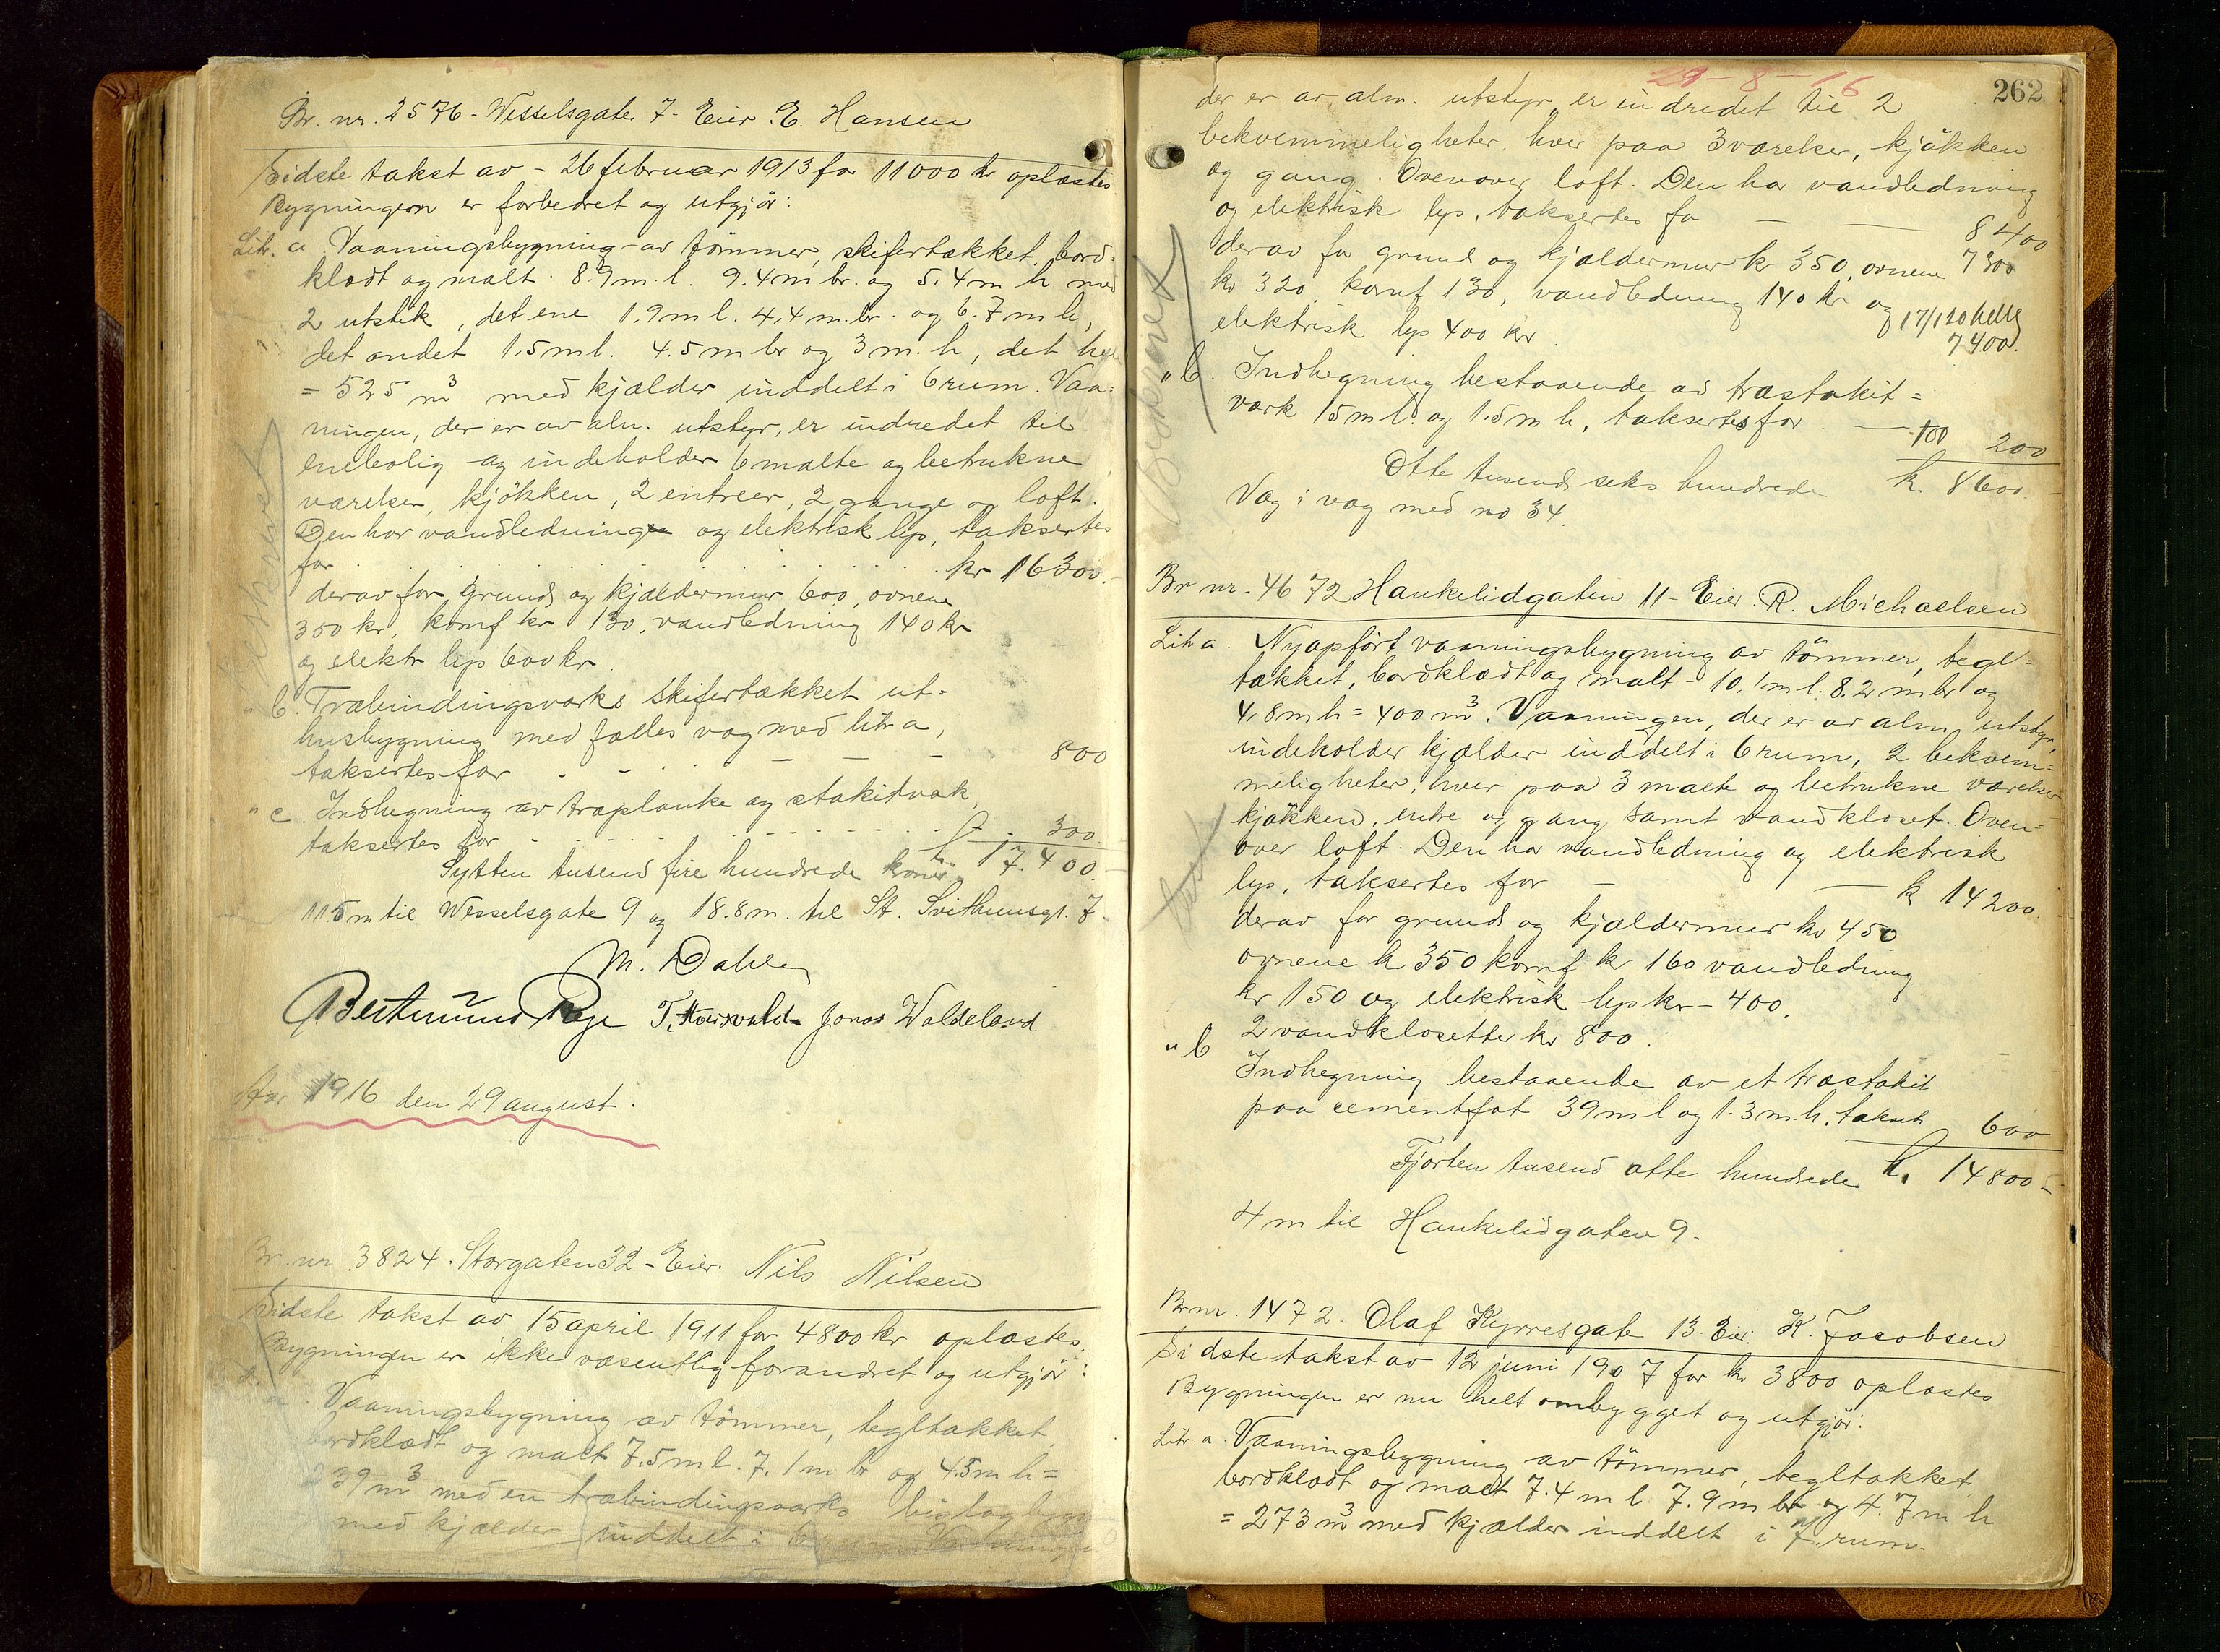 Br. nr. 2576 - Wesselsgate 7 - Eier: E. Hansen
Sidste takst av - 26 februar 1913 for 11000 kr oplæstes
Bygningen er forbedret og utgjör:
Litr. a Vaaningsbygning av tömmer, skifertækket, bord-
klædt og malt. 8.9 m. l. 9.4 m br. og 5.4 m h med
2 utstik, det ene 1.9 m l. 4.4 m. br. og 6.7 m h,
det andet 1.5 m l. 4.5 m br og 3 m. h, det hele
= 525 m³ med kjælder inddelt i 6 rum. Vaa-
ningen, der er av alm. utstyr, er indredet til
enebolig og indeholder 6 malte og betrukne
værelser, kjökken, 2 entreer, 2 gange og loft.
Den har vandledning og elektrisk lys, taksertes
for kr 16300.-
derav for grund og kjældermur 600, ovnene
350 kr, komf kr 130, vandledning 140 kr
og elektr lys 600 kr.
" b. Træbindingsværks skifertækket ut-
husbygning med fælles væg med litr a,
taksertes for - - - - - - 800
" c. Indhegning av træplanke og stakitværk,
taksertes for 300.
Sytten tusend fire hundrede kroner kr. 17.400.-
11.5 m til Wesselsgate 9 og 18.8 m. til St. Svithunsgt. 7
M. Dahle
Jonas Waldeland
Aar 1916 den 29 august.
Br. nr. 3824. Storgaten 32 - Eier. Nils Nilsen
Sidste takst av 15 april 1911 for 4800 kr oplæstes.
Bygningen er ikke væsentlig forandret og utgjör:
a. Vaaningsbygning av tömmer, tegltækket,
bordklædt og malt 7.5 m l. 7.1 m br og 4.5 m h =
239 m³ med en træbindingsværks bislag
med kjælder inddelt i 6 rum. Vaaningen
29-8-16
262
der er av alm. utstyr, er indredet til 2
bekvemmeligheter, hver paa 3 værelser, kjökken
og gang. Ovenover loft. Den har vandledning
og elektrisk lys, taksertes for - - 8400
derav for grund og kjældermur kr 350, ovnene 7300
kr 320, komf 130, vandledning 140 kr og
elektrisk lys 400 kr.
7400.
" b. Indhegning bestaaende av træstakit=
værk 15 m l. og 1.5 m h, taksertes for - 100 200
Otte tusend seks hundrede k. 8600.-
Væg i væg med no 34.
Br nr. 4672 Haukelidgaten 11 - Eier. R. Michaelsen
Litr a. Nyopfört vaaningsbygning av tömmer, tegl=
tækket, bordklædt og malt - 10.1 m l. 8.2 m br og
4.8 m h = 400 m³. Vaaningen, der er av alm. utstyr,
indeholder kjælder inddelt i 6 rum, 2 bekvem=
meligheter, hver paa 3 malte og betrukne værelser
kjøkken, entre og gang samt vandkloset. Oven=
over loft. Den har vandledning og elektrisk
lys, taksertes for - - k 14200.
derav for grund og kjældermur kr 450
ovnene k 350 komf k 160 vandledning
kr 150 og elektrisk lys kr - 400.
2 vandklosetter kr 800.
" b Indhegning bestaaende av et træstakit
paa cementfot 39 m l og 1.3 m. h. takseh 600
Fjorten tusend otte hundrede k. 14800-
4 m til Haukelidgaten 9.
Br nr. 1472. Olaf Kyrresgate 13. Eier: K. Jacobsen
Sidste takst av 12 juni 1907 for kr 3800 oplæstes
Bygningen er nu helt ombygget og utgjör:
Litr. a. Vaaningsbygning av tömmer, tegltækket
bordklædt og malt 7.4 m l 7.9 m br og 4.7 m h
= 273 m³ med kjælder inddelt i 7 rum.